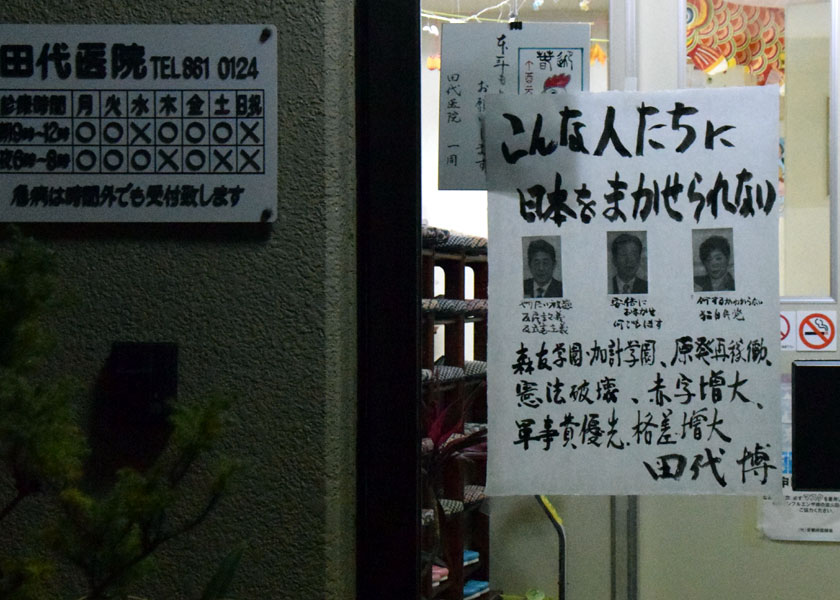 田代医院 TEL 861 0124
診療時間 月 火 水 木 金 土 日祝
9時~12時 ○ ○ × ○ ○ ○ ×
夜6時~8時 ○ ○ × ○ ○ × ×
急病は時間外でも受付致します
田代医院 一同
こんな人たちに
日本をまかせられない
やりたい放題
反民主主義
反立憲主義
森友学園・加計学園、原発再稼働、
憲法破壊、赤字増大、
軍事費優先、格差増大
田代 博